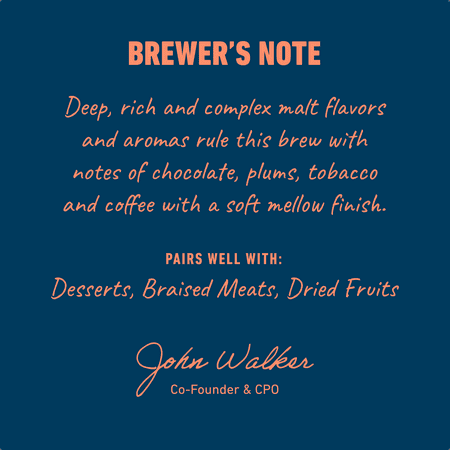 BREWER'S NOTE
Deep, rich and complex malt flavors
and aromas rule this brew with
notes of chocolate, plums, tobacco
and coffee with a soft mellow finish.
PAIRS WELL WITH:
Desserts, Braised Meats, Dried Fruits
John Walker
Co-Founder & CPO